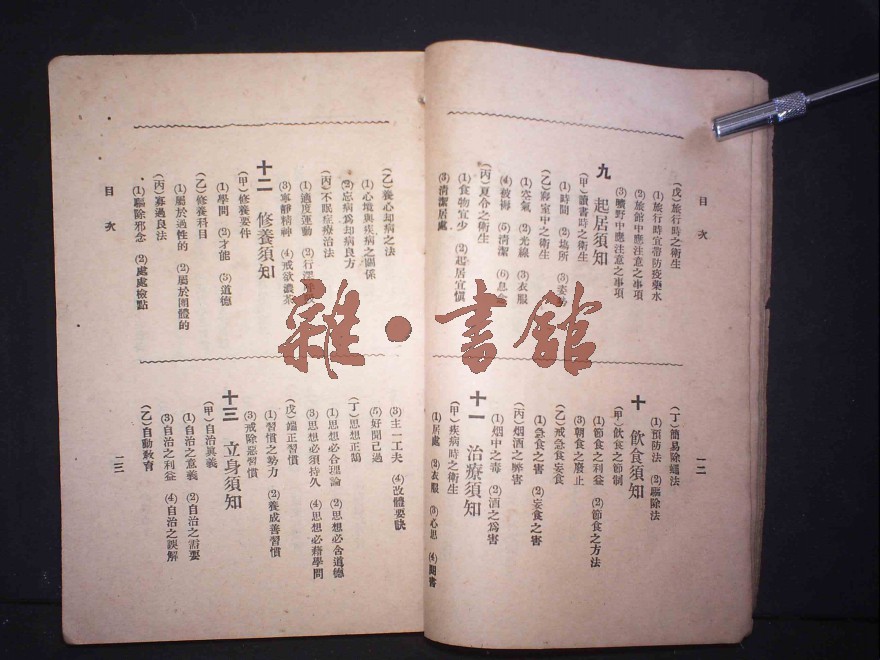 目次
(戊)旅行時之衛生
(1)旅行時宜帶防疫藥水
(2)旅館中應注意之事項
(3)曠野中應注意之事項
九 起居須知
(甲)讀書時之衛生
(1)時間 (2)場所 (3)姿勢
(乙)寢室中之衛生
(1)空氣 (2)光線 (3)衣服
(4)被褥 (5)清潔 (6)息
(丙)夏令之衛生
(1)食物宜少 (2)起居宜愼
(3)清潔居處
(丁)簡易除蠅法
(1)預防法 (2)驅除法
十 飲食須知
(甲)飲食之節制
(1)節食之利益 (2)節食之方法
(3)朝食之廢止
(乙)戒急食妄食
(1)急食之害 (2)妄食之害
(丙)烟酒之弊害
(1)烟中之毒 (2)酒之爲害
十一 治療須知
(甲)疾病時之衛生
(1)居處 (2)衣服 (3)心思 (4)閱書
一二
目次
(乙)養心却病之法
(1)心境與疾病之關係
(2)忘病爲却病良方
(丙)不眠症療治法
(1)適度運動 (2)行深呼
(3)寧靜精神 (4)戒欲濃茶
十二 修養須知
(甲)修養要件
(1)學問 (2)才能 (3)道德
(乙)修養科目
(1)屬於個性的 (2)屬於團體的
(丙)寡過良法
(1)驅除邪念 (2)處處檢點
(3)主一工夫 (4)改體要訣
(5)好聞己過
(丁)思想正鵠
(1)思想必合理論 (2)思想必合道德
(3)思想必須持久 (4)思想必藉學問
(戊)端正習慣
(1)習慣之勢力 (2)養成善習慣
(3)戒除惡習慣
十三 立身須知
(甲)自治眞義
(1)自治之意義 (2)自治之需要
(3)自治之利益 (4)自治之誤解
(乙)自動教育
一三
雜·書館